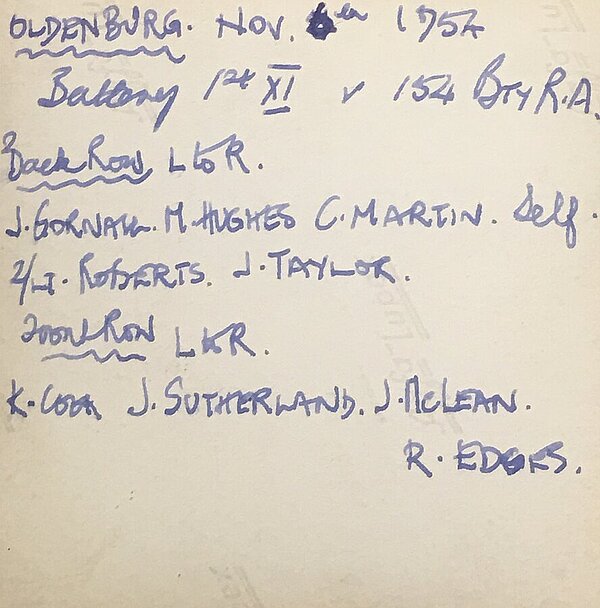 OLDENBURG. NOV. 6th 1954
Battery 1st XI v 154 BTY R.A.
Back Row L to R.
J. GORNALL. M. HUGHES C. MARTIN. Self.
2/LT. ROBERTS. J. TAYLOR.
Front Row L to R.
K. J. SUTHERLAND. J. McLEAN.
R. EDGES.